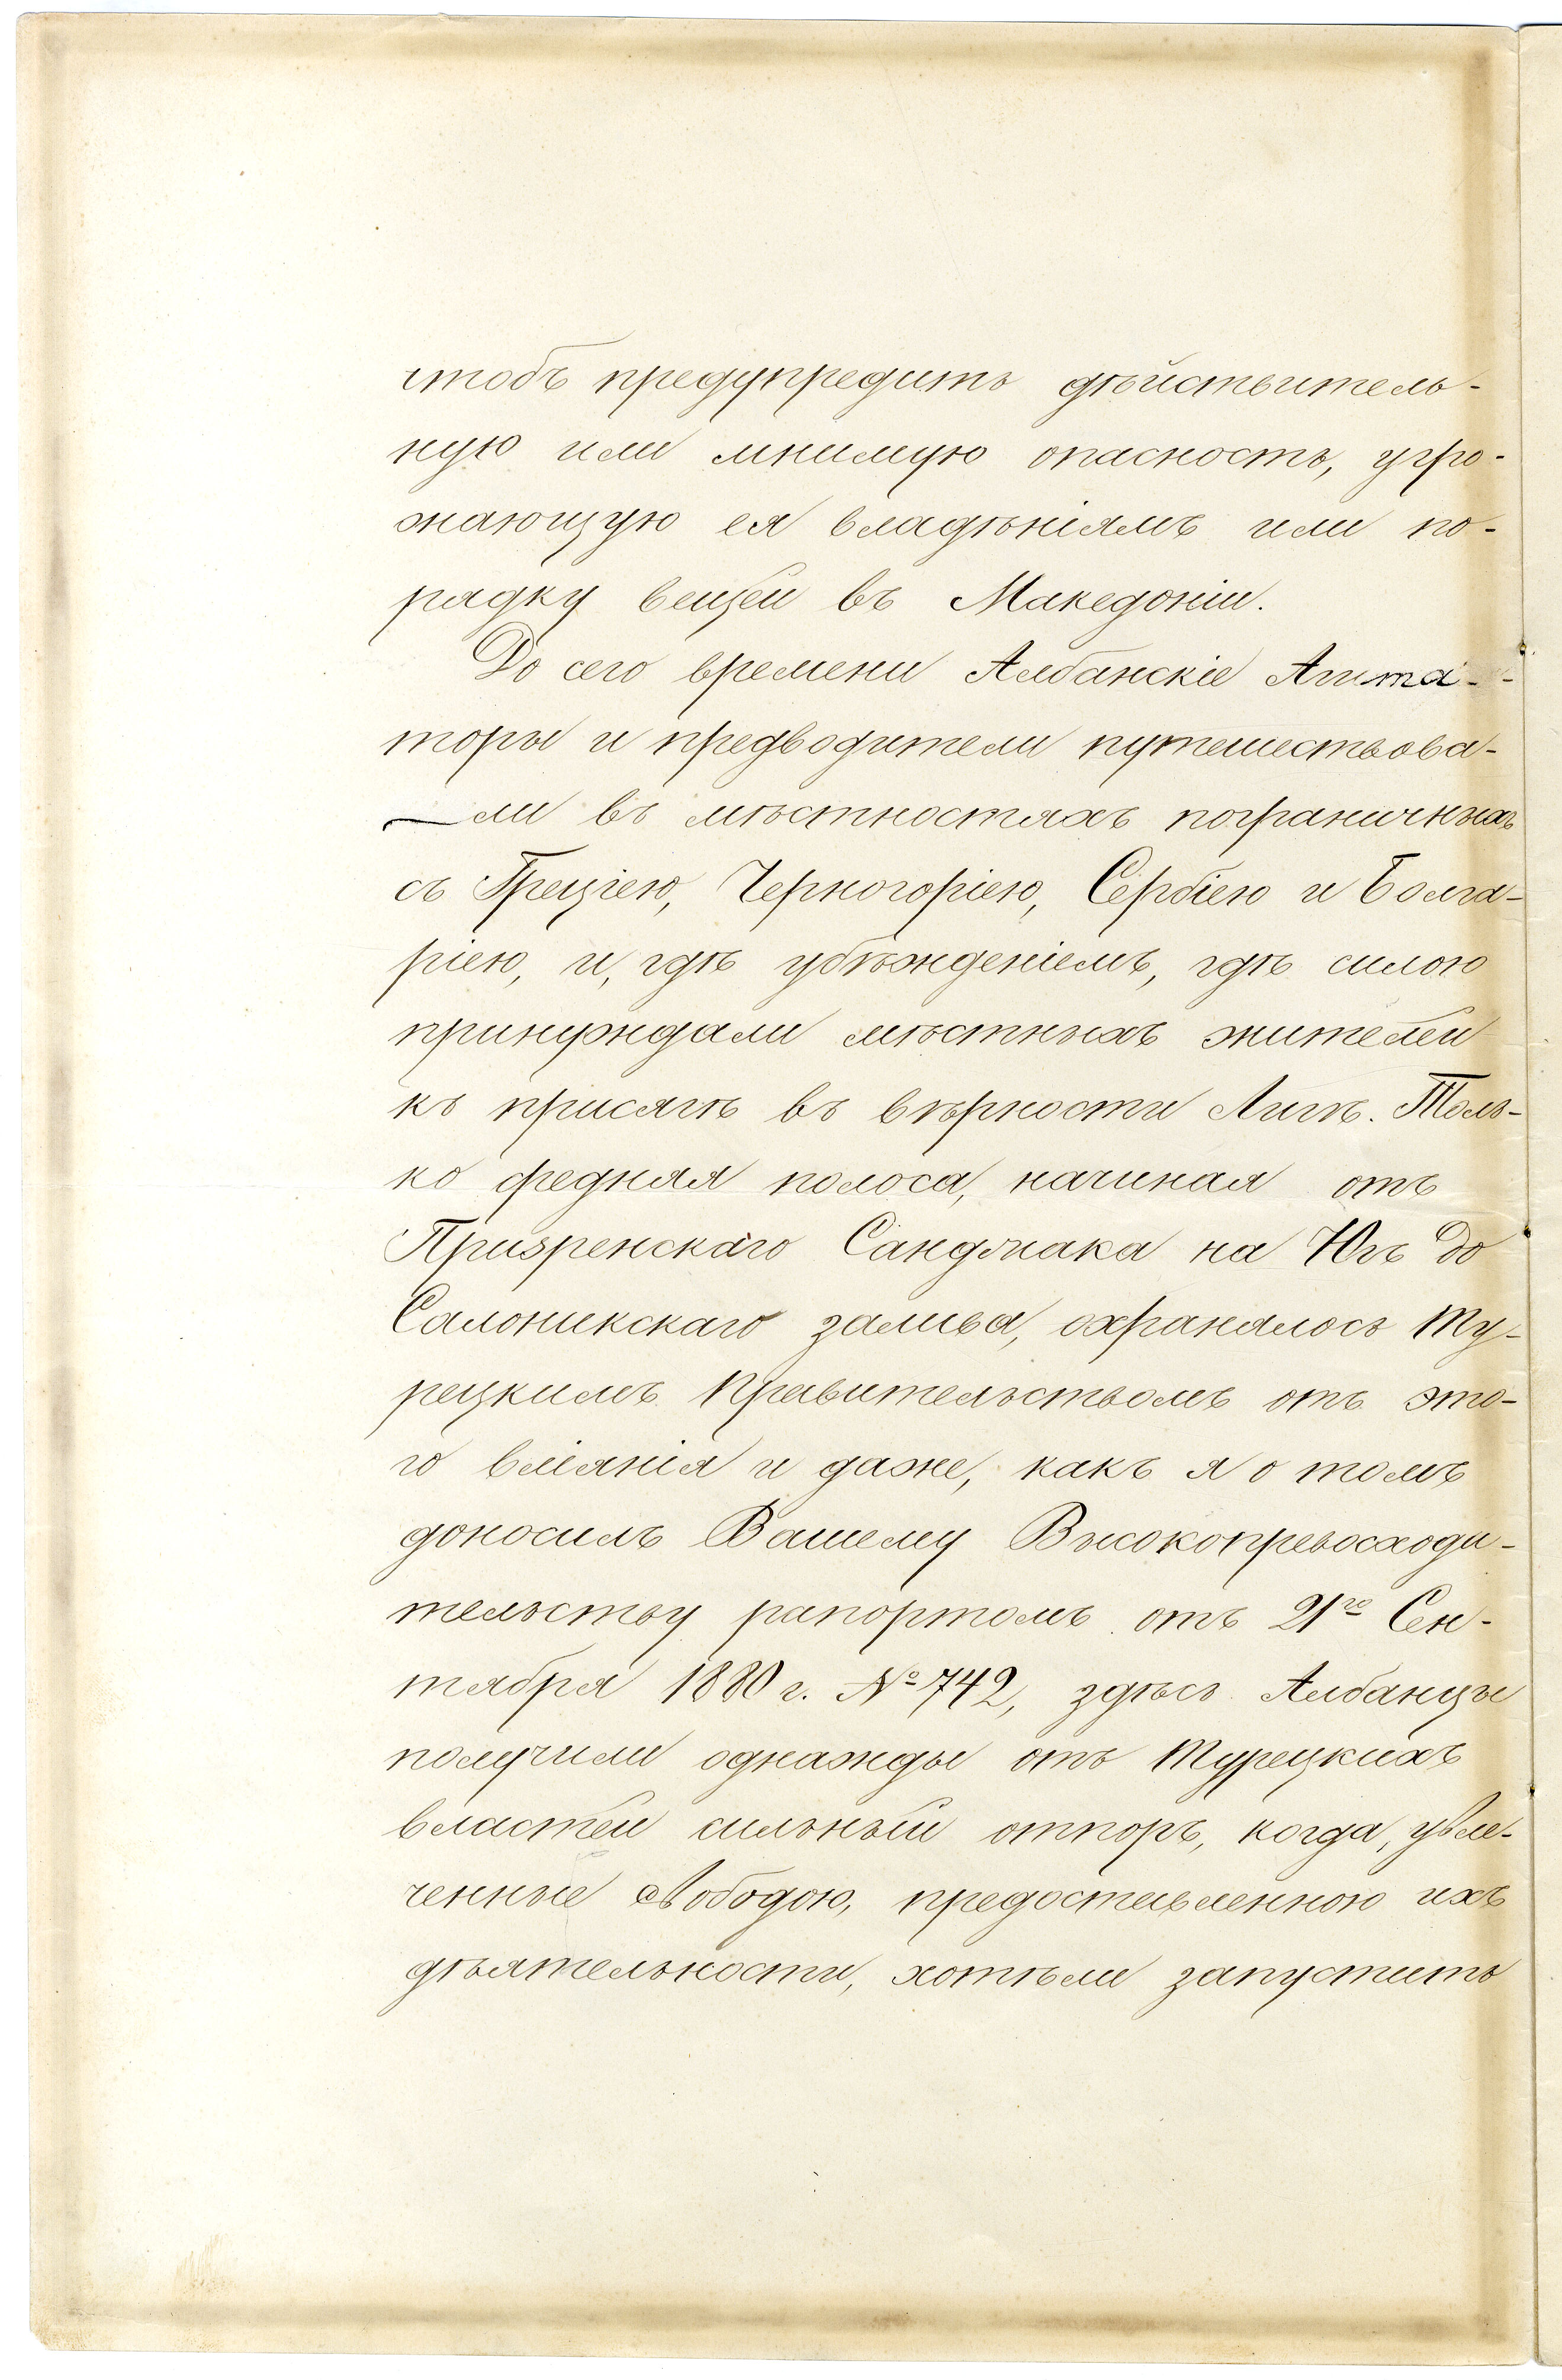 чтобъ предупредить дѣйствитель-
ную или мнимую опасность, угро-
жающую ея владѣніямъ или по-
рядку вещей въ Македоніи.
До сего времени Албанскіе Агита-
торы и предводители путешествова-
ли въ мѣстностяхъ пограничныхъ
съ Греціею, Черногоріею, Сербіею и Болга-
ріею, и, гдѣ убѣжденіемъ, гдѣ силою
принуждали мѣстныхъ жителей
къ присягѣ въ вѣрности Лигѣ. Толь-
ко средняя полоса, начиная отъ
Призренскаго Санджака на Югъ до
Салоникскаго залива, охранялось Ту-
рецкимъ Правительствомъ отъ это-
го вліянія и даже, какъ я о томъ
доносилъ Вашему Высокопревосходи-
тельству рапортомъ отъ 21го Сен-
тября 1880 г. № 742, здѣсь Албанцы
получили однажды отъ Турецкихъ
властей сильный отпоръ, когда, увле-
ченные свободою, предоставленною ихъ
дѣятельности, хотѣли запустить